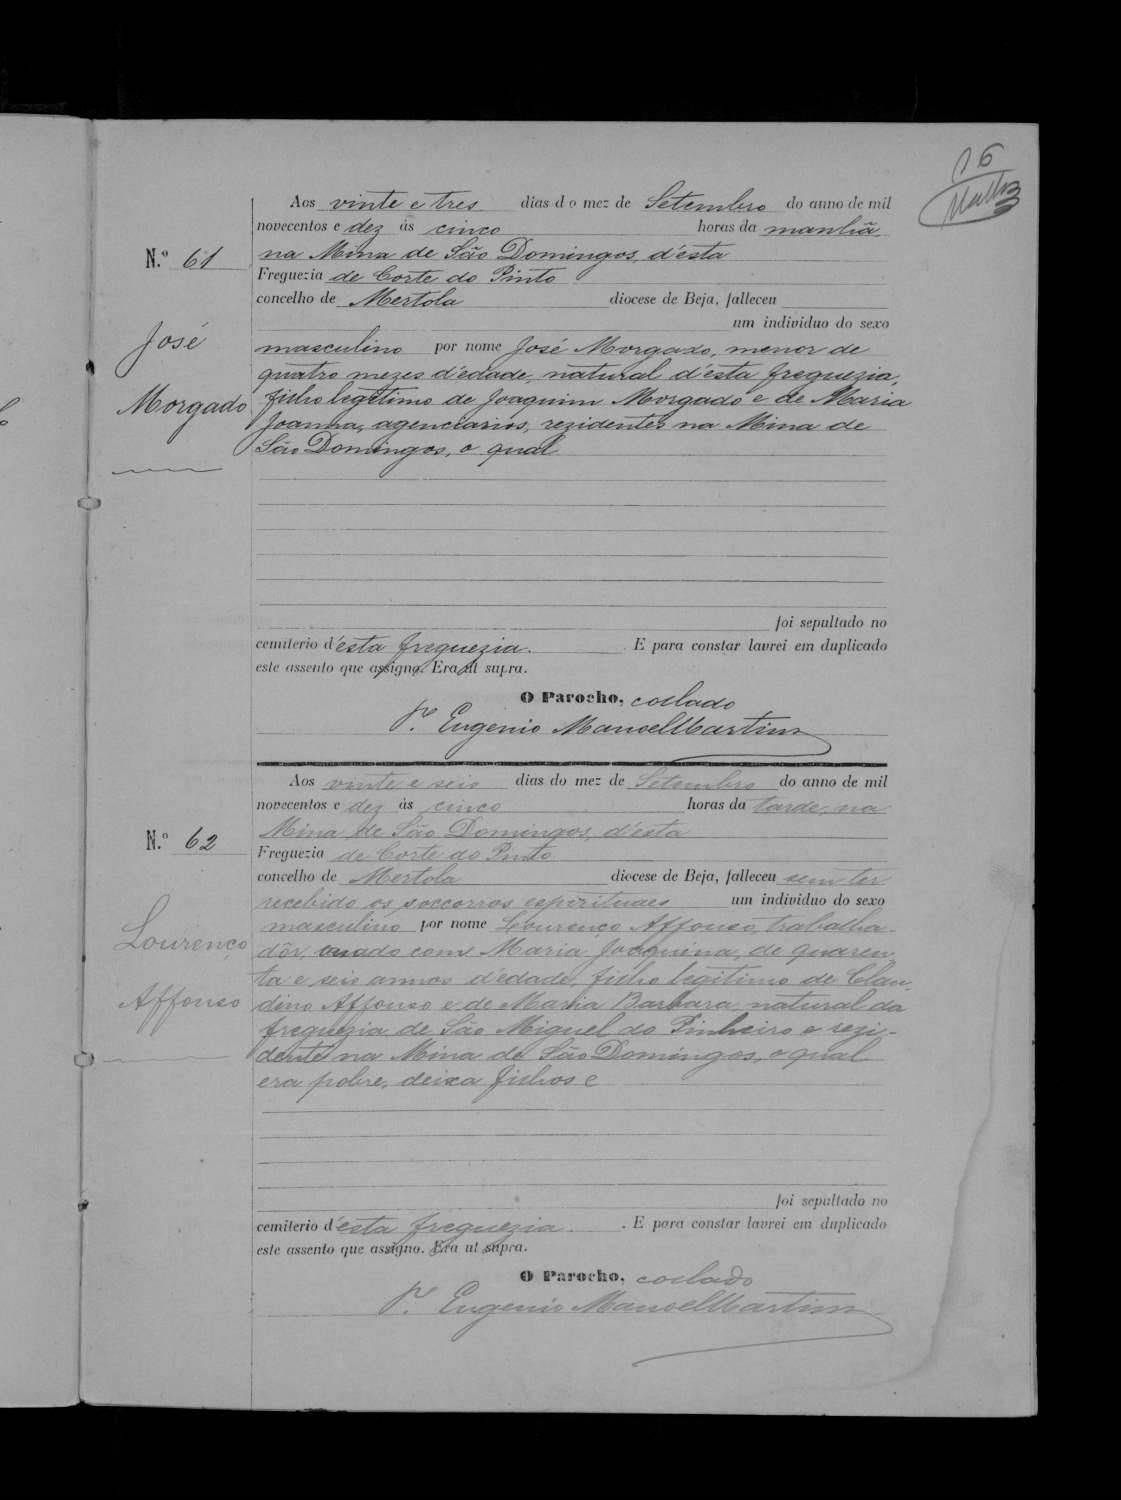 16
Aos vinte e tres dias do mez de Setembro do anno de mil
novecentos e dez ás cinco horas da manhã,
na Mina de São Domingos, d'ésta
Freguezia de Corte do Pinto
concelho de Mertola diocese de Beja, falleceu
um individuo do sexo
masculino por nome José Morgado, menor de
quatro mezes d'edade, natural d'esta freguezia,
filho legitimo de Joaquim Morgado e de Maria
Joanna, agenciarios, rezidentes na Mina de
São Domingos, o qual
foi sepultado no
cemiterio d'ésta freguezia. E para constar lavrei em duplicado
este assento que assigno. Era ut supra.
O Parocho, collado
P.e Eugenio Manoel Martins
N.º 61
José
Morgado
Aos vinte e seis dias do mez de Setembro do anno de mil
novecentos e dez ás cinco horas da tarde, na
Mina de São Domingos, d'ésta
Freguezia de Corte do Pinto
concelho de Mertola diocese de Beja, falleceu sem ter
recebido os soccorros espirituaes um individuo do sexo
masculino por nome Lourenço Affonso, trabalha-
dôr, casado com Maria Joaquina, de quaren-
ta e seis annos d'edade, filho legitimo de Clau-
dino Affonso e de Maria Barbara, natural da
freguezia de São Miguel do Pinheiro e rezi-
dente na Mina de São Domingos, o qual
era pobre, deixa filhos e
foi sepultado no
cemiterio d'ésta freguezia. E para constar lavrei em duplicado
este assento que assigno. Era ut supra.
O Parocho, collado
P.e Eugenio Manoel Martins
N.º 62
Lourenço
Affonso